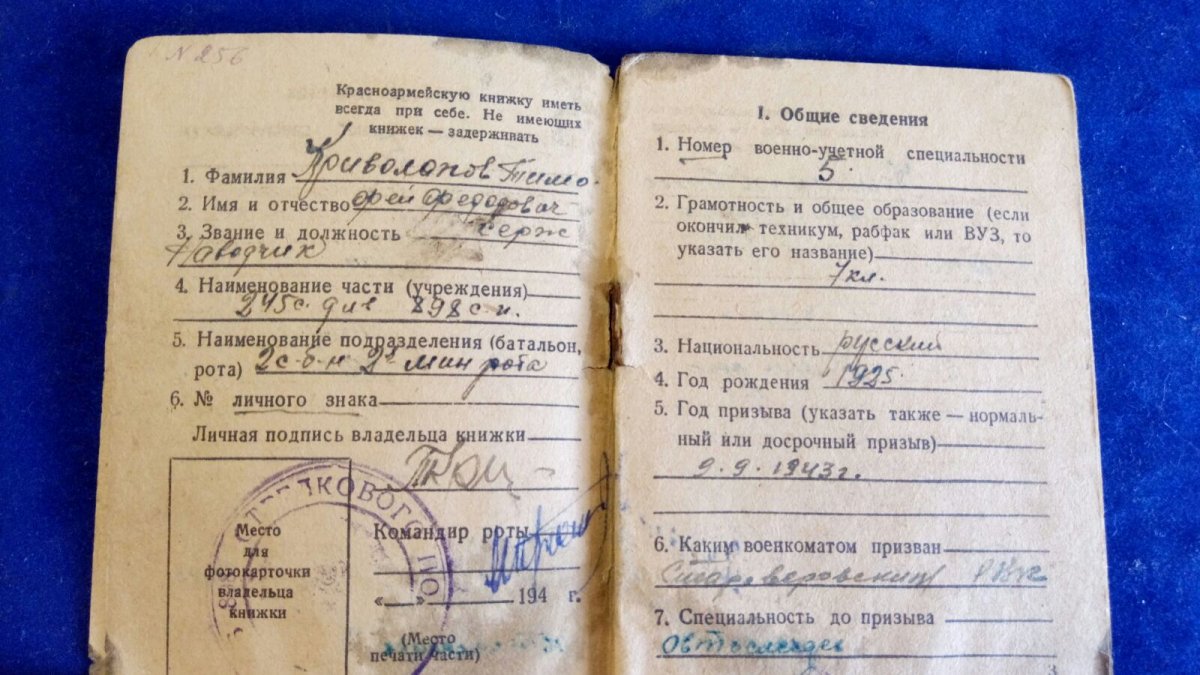 N 256
Красноармейскую книжку иметь
всегда при себе. Не имеющих
книжек — задерживать
1. Фамилия Криволапов Тимо-
2. Имя и отчество фей Федорович
3. Звание и должность Серж
Наводчик
4. Наименование части (учреждения)
245 с. див 898 с. п.
5. Наименование подразделения (батальон,
рота) 2 с-б-н 2я мин рота
6. № личного знака
Личная подпись владельца книжки
Место
для
фотокарточки
владельца
книжки
СТРЕЛКОВОГО ПО
Командир роты
« » 194 г.
(Место
печати части)
I. Общие сведения
1. Номер военно-учетной специальности
5
2. Грамотность и общее образование (если
окончил техникум, рабфак или ВУЗ, то
указать его название)
7 кл.
3. Национальность русский
4. Год рождения 1925.
5. Год призыва (указать также — нормаль-
ный или досрочный призыв)
9. 9. 1943 г.
6. Каким военкоматом призван
РВК
7. Специальность до призыва
3